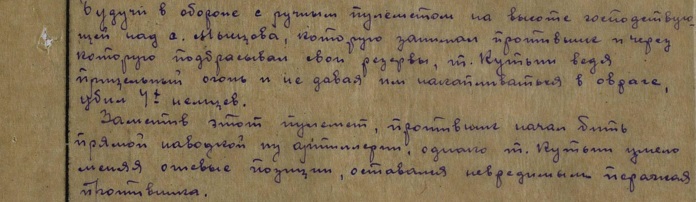 Будучи в обороне с ручным пулеметом на высоте господствую-
щей над д. Мышцова, которую занимал противник и через
которую подбрасывал свои резервы, т. Кутьин ведя
прицельный огонь и не давая им накапливаться в овраге,
убил немцев.
Заметив этот пулемет, противник начал бить
прямой наводкой из артиллерии, однако т. Кутьин умело
меняя огневые позиции, оставался невредимым поражая
противника.